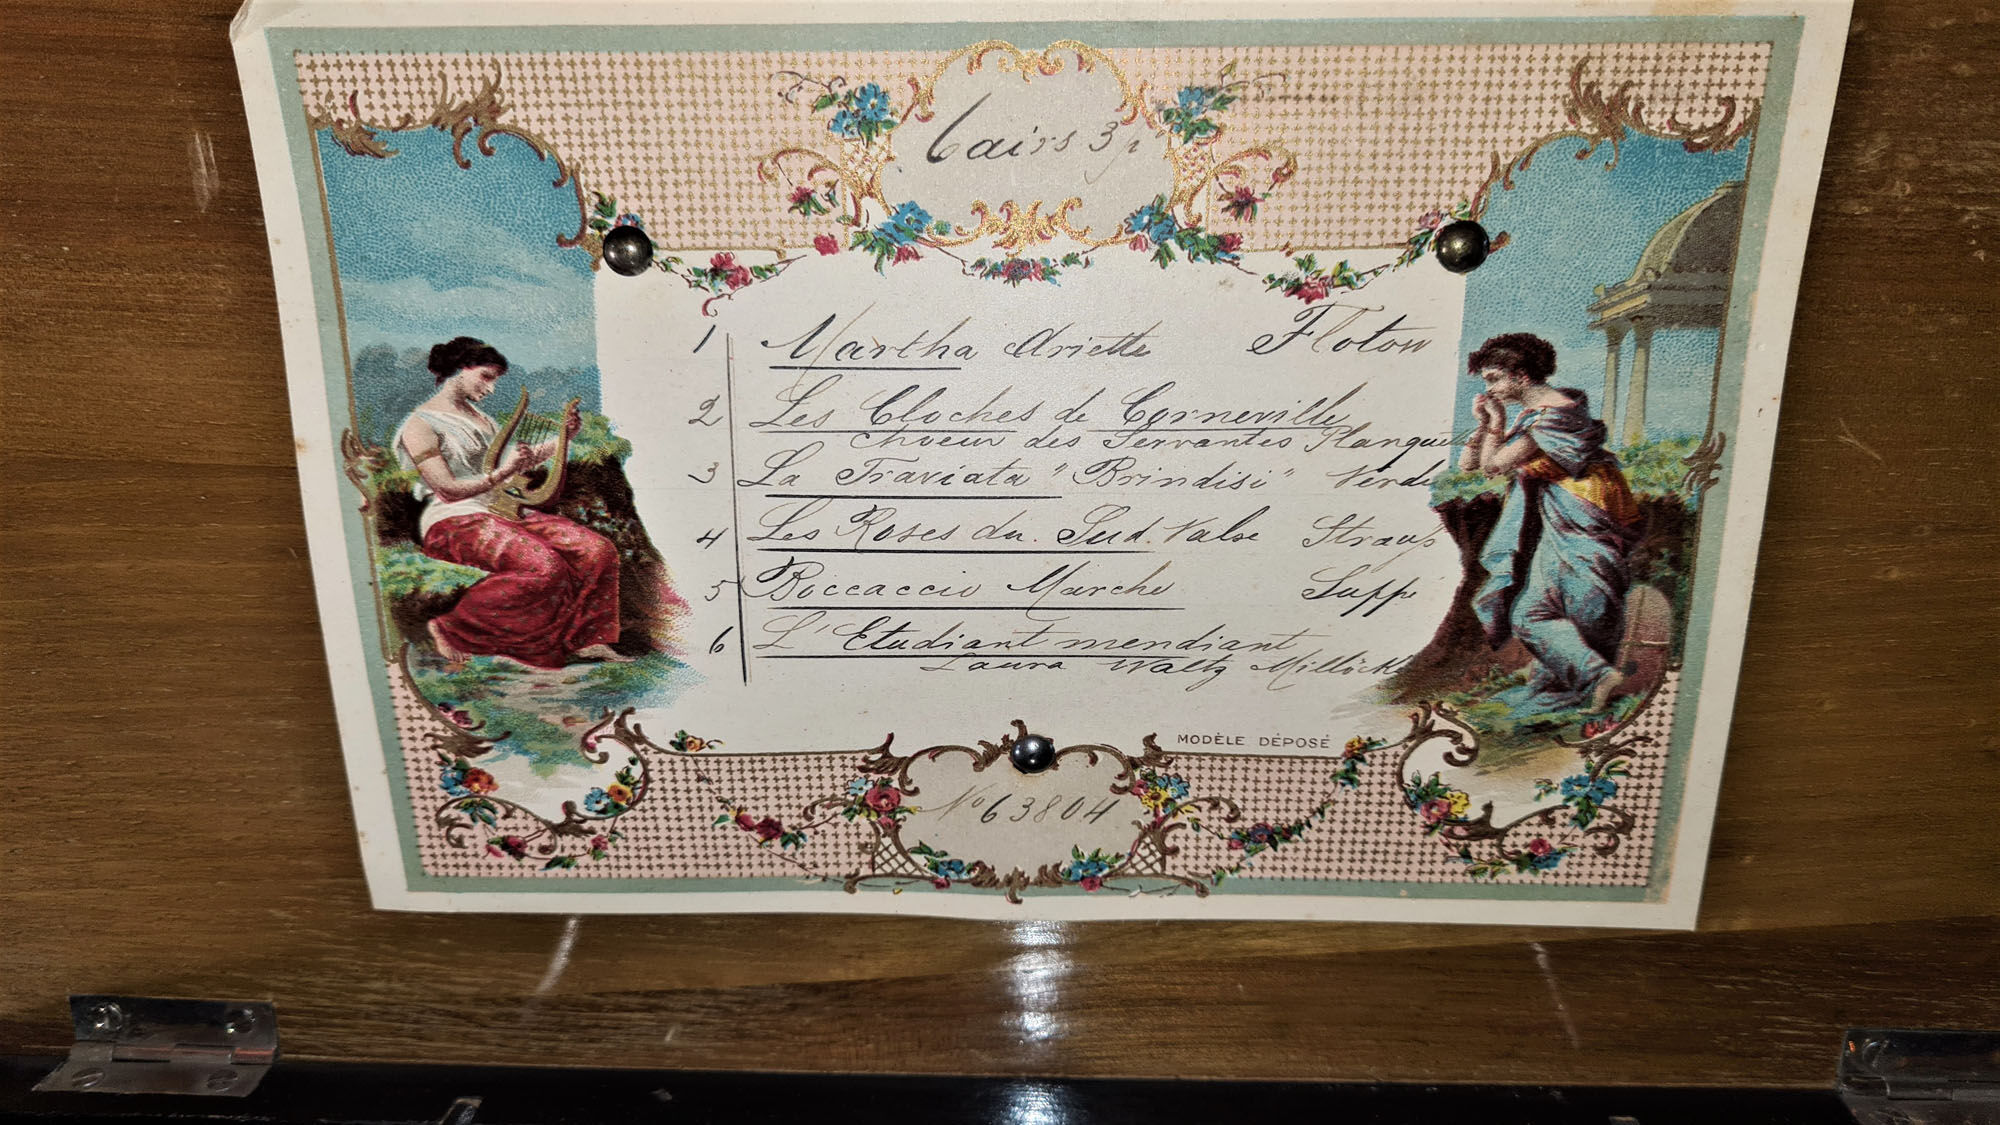 6 airs 3p
1 Martha Ariette Flotow
2 Les Cloches de Corneville
Choeur des Servantes Planquette
3 La Traviata "Brindisi" Verdi
4 Les Roses du Sud. Valse Strauß
5 Boccaccio Marche Suppé
6 L'Etudiant mendiant
Laura Waltz Millöck
MODÈLE DÉPOSÉ
No 63804